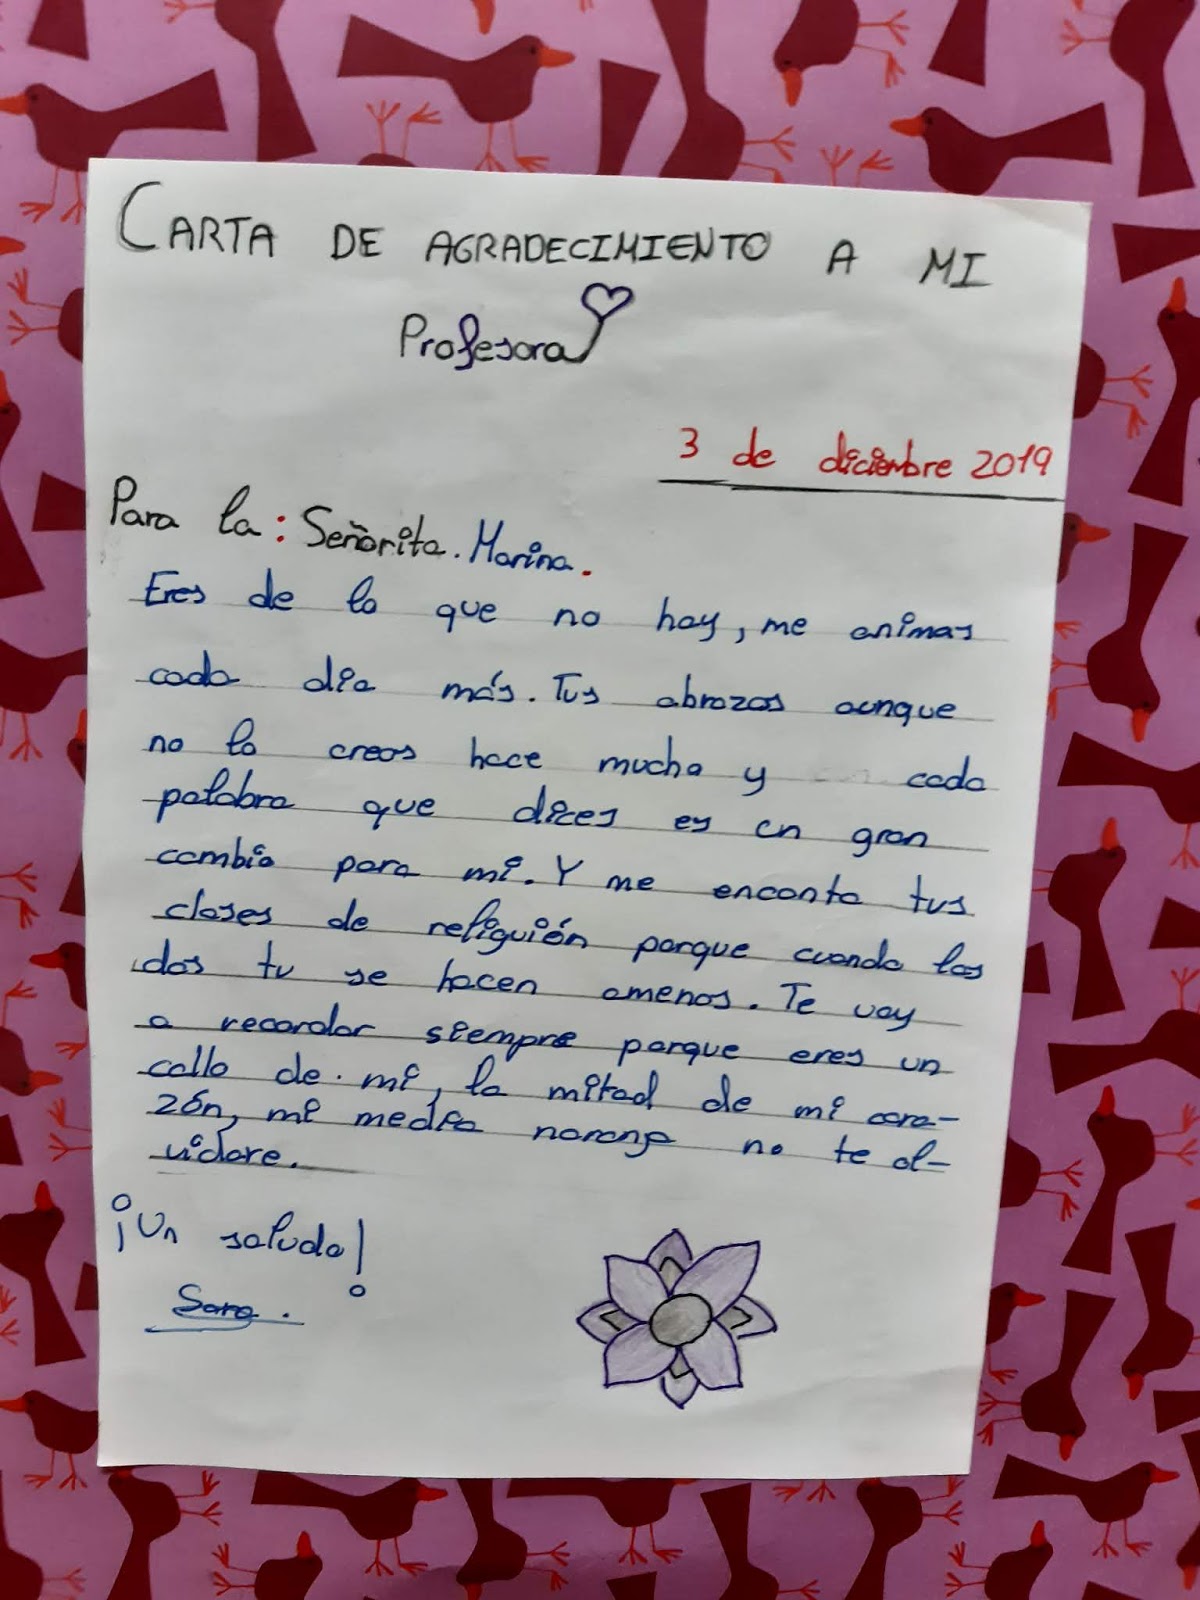 CARTA DE AGRADECIMIENTO A MI
Profesora
3 de diciembre 2019
Para la: Señorita. Marina.
Eres de lo que no hay, me animas
cada dia más. Tus abrazos aunque
no lo creas hace mucho y cada
palabra que dices es un gran
cambio para mi. Y me encanta tus
clases de religuión porque cuando las
das tu se hacen amenas. Te voy
a recordar siempre porque eres un
callo de mi, la mitad de mi cora-
zón, mi media naranja no te ol-
vidare.
¡Un saludo!
Sara.